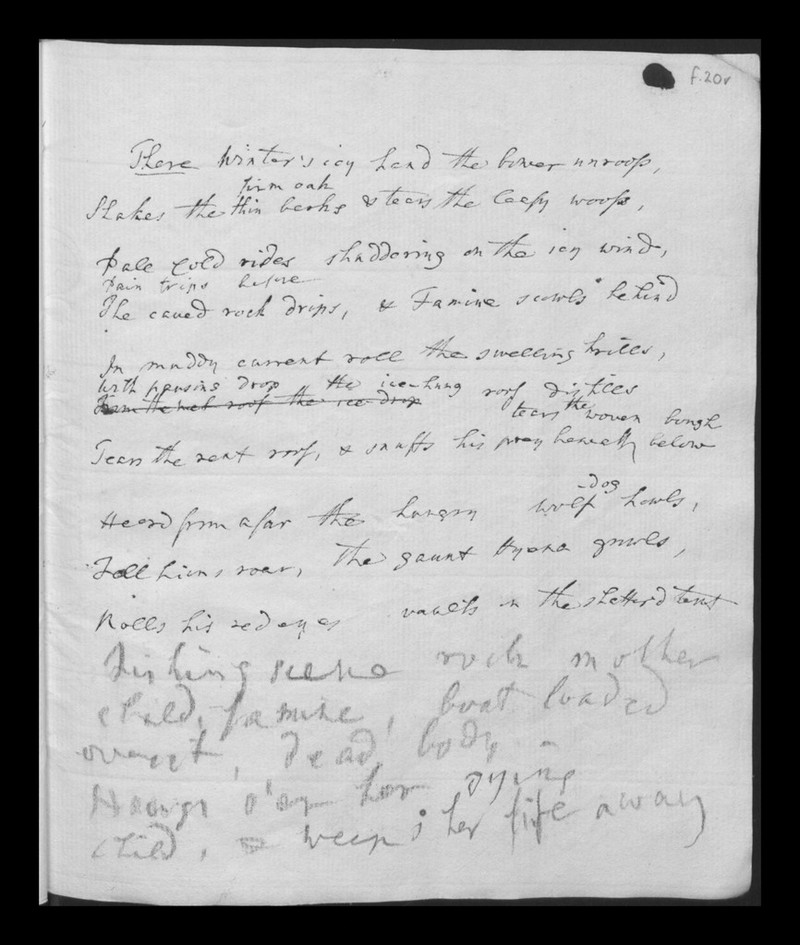 f.20v
There Winter's icy hand the bower unroofs,
firm oak
Shakes the thin barks & tears the leafy woofs,
Pale Cold rides shuddering on the icy wind,
Pain trips before
The caved rock drips, & Famine scowls behind
In muddy current roll the swelling hrills,
With pausing drop the ice-hung roof distills
From the wet roof the ice drop
tears the woven bough
Tears the rent roof, & snuffs his prey beneath below
-dog
Heard from afar the hungry wolf howls,
Fell lions roar, the gaunt Hyena growls,
Rolls his red eyes vaults on the shatter'd tent
Fishing scene rock mother
child, famine, boat loaded
overset, dead body -
Hangs o'er her dying
child, & weeps her life away